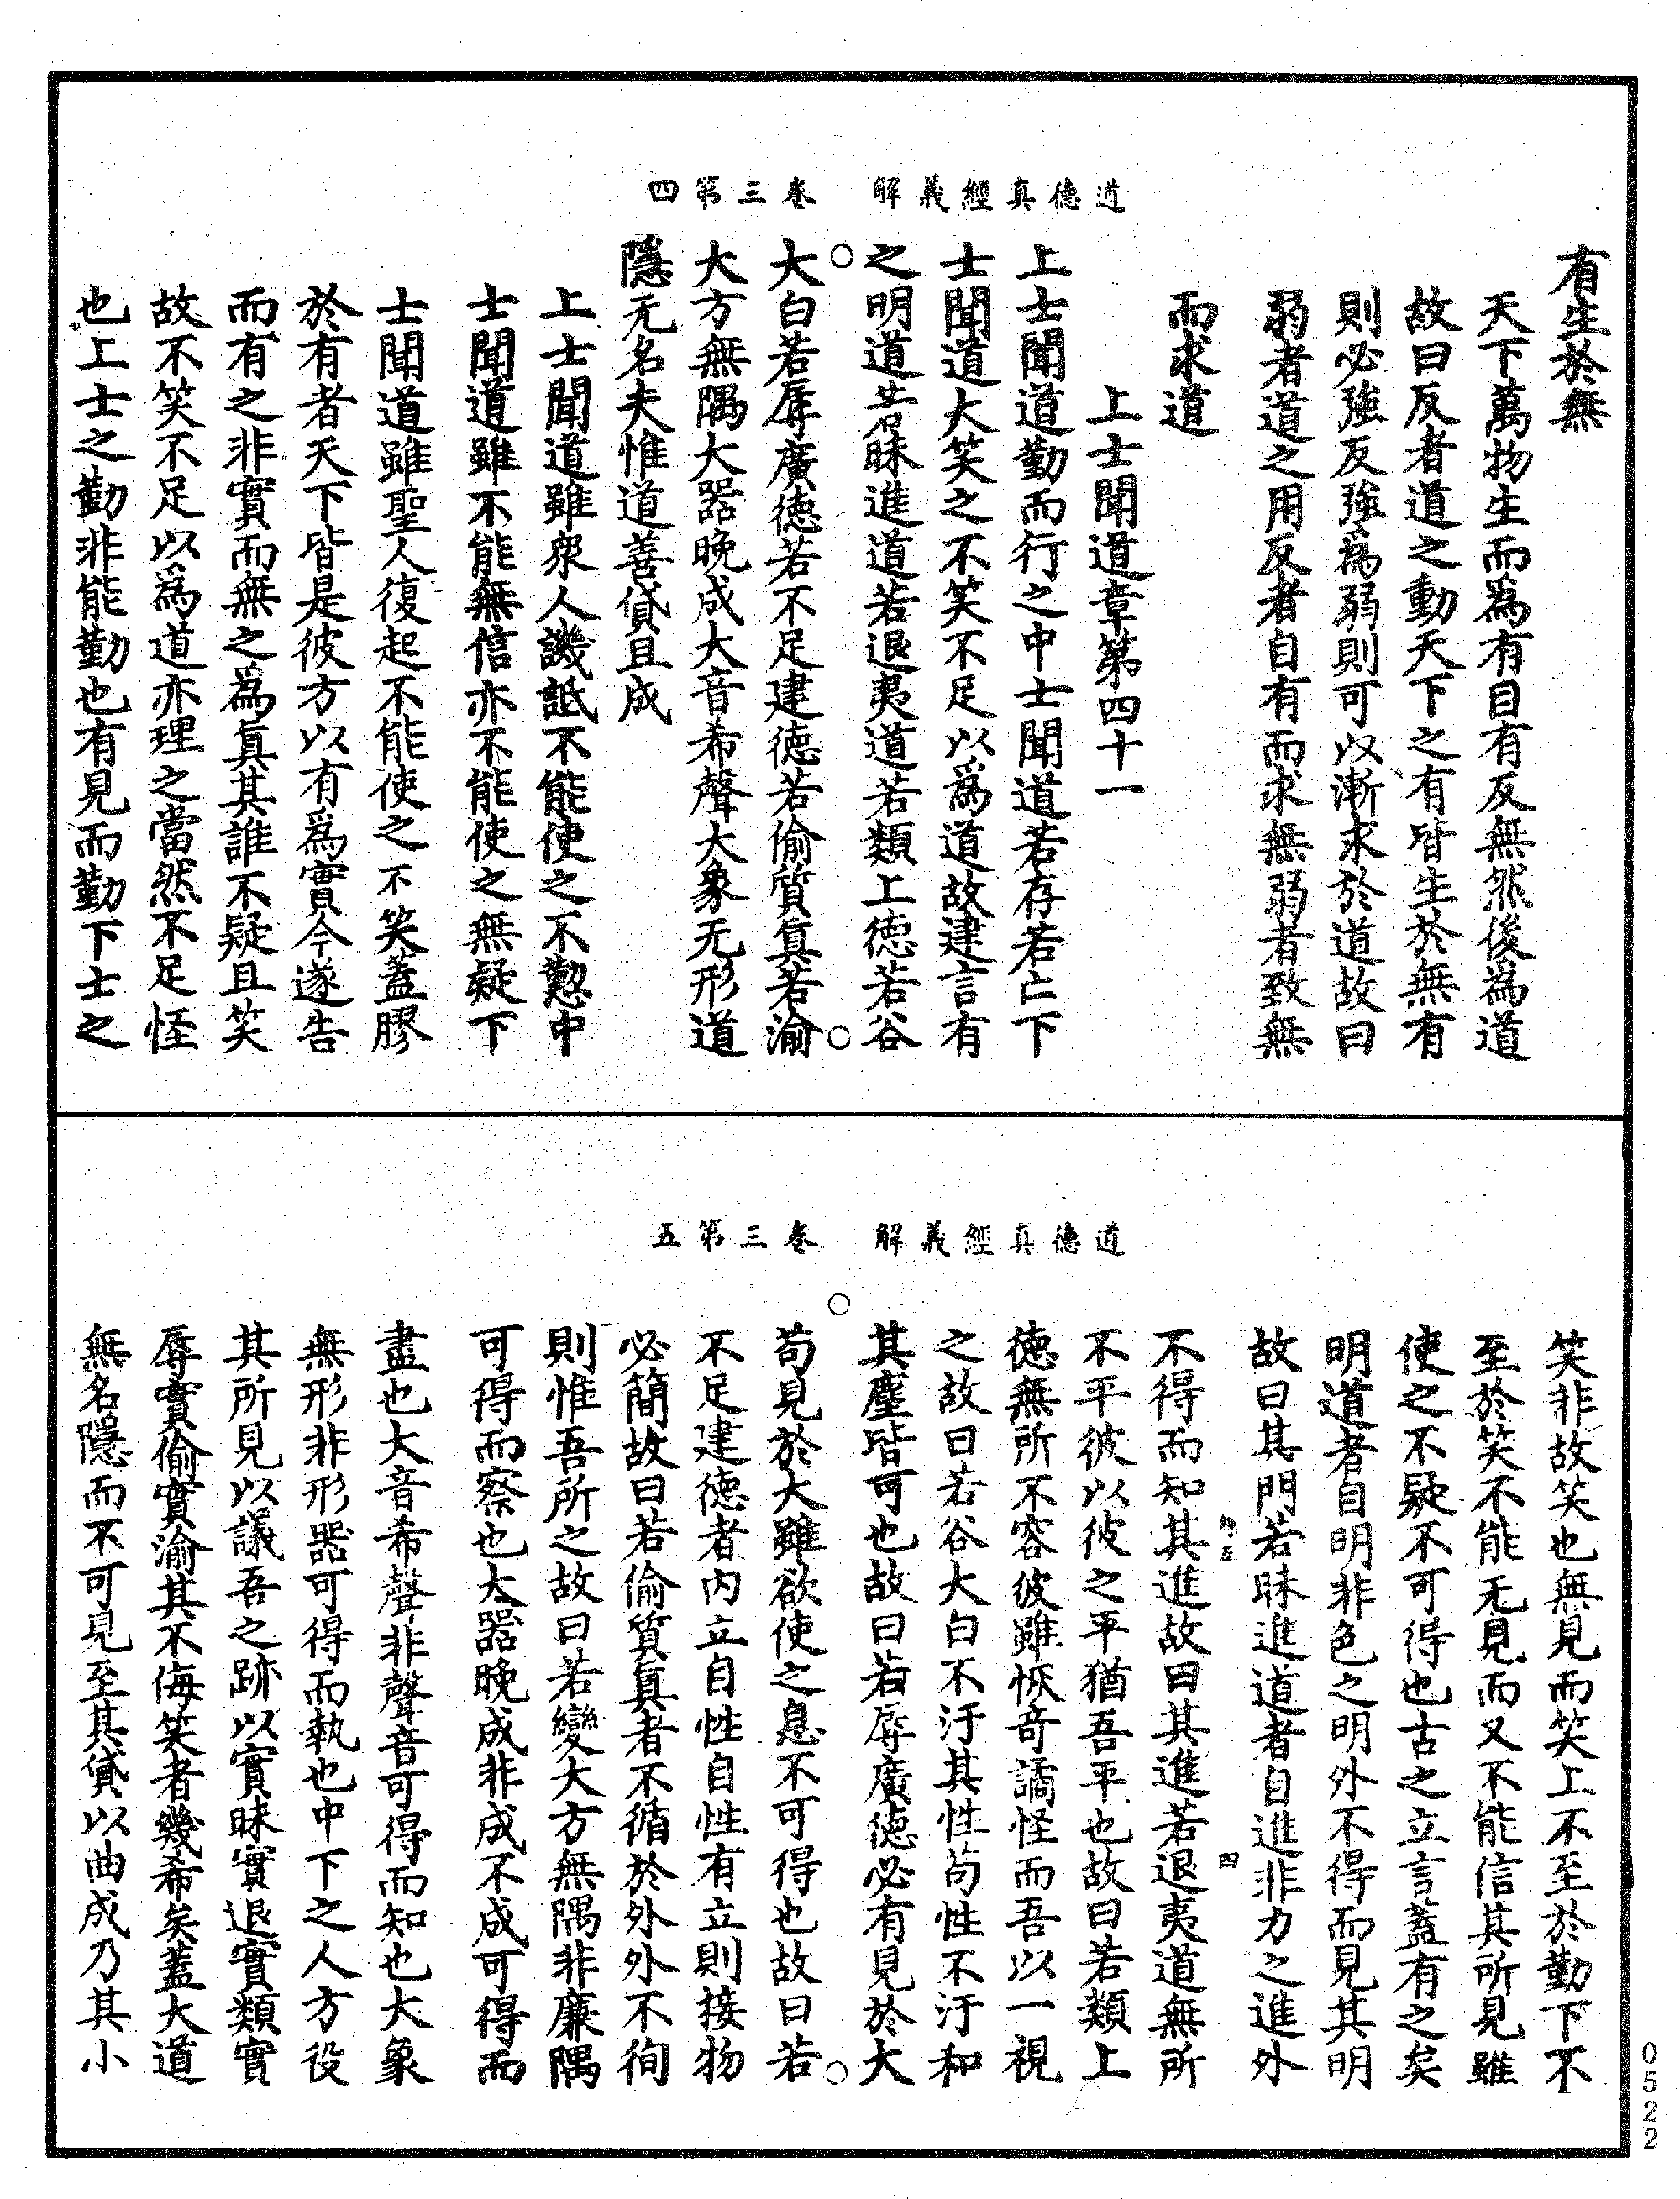 道德真經義解　卷三第四
有生於無
天下萬物生而為有目有反無然後為道
故曰反者道之動天下之有皆生於無有
則必強反強為弱則可以漸求於道故曰
弱者道之用反者自有而求無弱者致無
而求道
上士聞道章第四十一
上士聞道勤而行之中士聞道若存若亡下
士聞道大笑之不笑不足以為道故建言有
之明道若昧進道若退夷道若類上德若谷
大白若辱廣德若不足建德若偷質真若渝
大方無隅大器晚成大音希聲大象无形道
隱无名夫惟道善貸且成
上士聞道雖眾人譏詆不能使之不懃中
士聞道雖不能無信亦不能使之無疑下
士聞道雖聖人復起不能使之不笑蓋膠
於有者天下皆是彼方以有為實今遂告
而有之非實而無之為真其誰不疑且笑
故不笑不足以為道亦理之當然不足怪
也上士之勤非能勤也有見而勤下士之
道德真經義解　卷三第五
笑非故笑也無見而笑上不至於勤下不
至於笑不能无見而又不能信其所見雖
使之不疑不可得也古之立言蓋有之矣
明道者自明非色之明外不得而見其明
故曰其門若昧進道者自進非力之進外
不得而知其進故曰其進若退夷道無所
不平彼以彼之平猶吾平也故曰若類上
德無所不容彼雖恢奇譎怪而吾以一視
之故曰若谷大白不汙其性苟性不汙和
其塵皆可也故曰若辱廣德必有見於大
苟見於大雖欲使之息不可得也故曰若
不足建德者內立自性自性有立則接物
必簡故曰若偷質真者不循於外外不徇
則惟吾所之故曰若變大方無隅非廉隅
可得而察也大器晚成非成不成可得而
盡也大音希聲非聲音可得而知也大象
無形非形器可得而執也中下之人方役
其所見以議吾之跡以實昧實退實類實
辱實偷實渝其不侮笑者幾希矣蓋大道
無名隱而不可見至其貸以曲成乃其小
四
0522